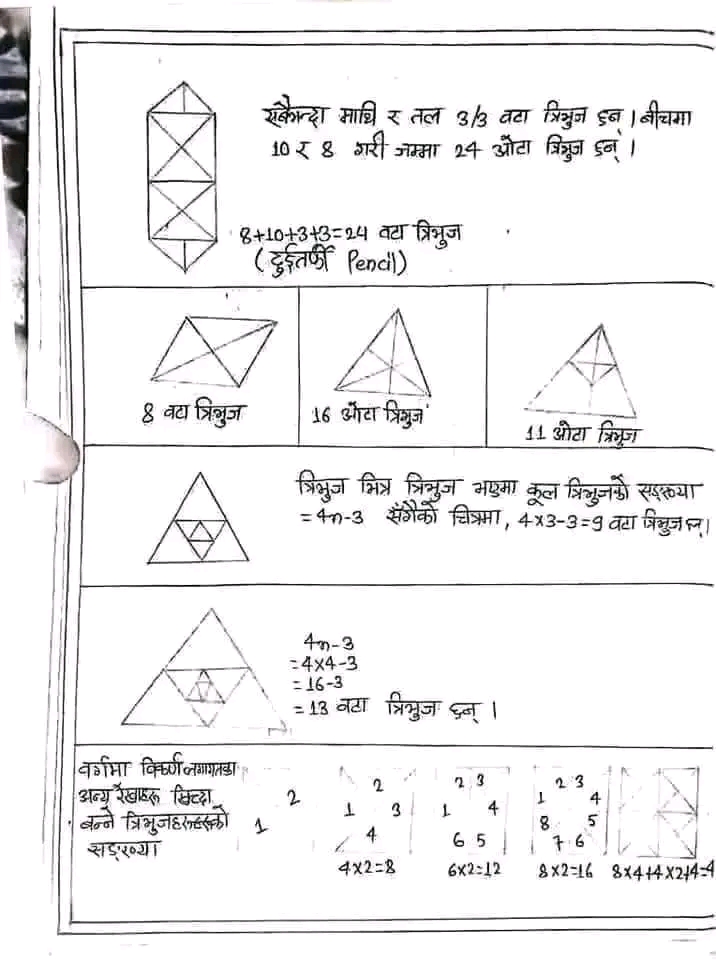 माथि र तल 3/3 वटा त्रिभुज छन् । बीचमा
10 र 8 गरी जम्मा 24 ओटा त्रिभुज छन् ।
8+10+3+3=24 वटा त्रिभुज
(दुईतर्फी Pencil)
8 वटा त्रिभुज
16 ओटा त्रिभुज
11 ओटा त्रिभुज
त्रिभुज भित्र त्रिभुज भएमा कूल त्रिभुजको सङ्ख्या
= 4n-3 सँगैको चित्रमा, 4×3-3=9 वटा त्रिभुज छन् ।
4n-3
=4×4-3
=16-3
=13 वटा त्रिभुज छन् ।
वर्गमा विकर्ण लगायतका
अन्य रेखाहरू खिच्दा
बन्ने त्रिभुजहरूको
सङ्ख्या
1 2
1 2 3 4
4×2=8
1 2 3 4 5 6
6×2=12
1 2 3 4 5 6 7 8
8×2=16
8×4+4×2+4=4